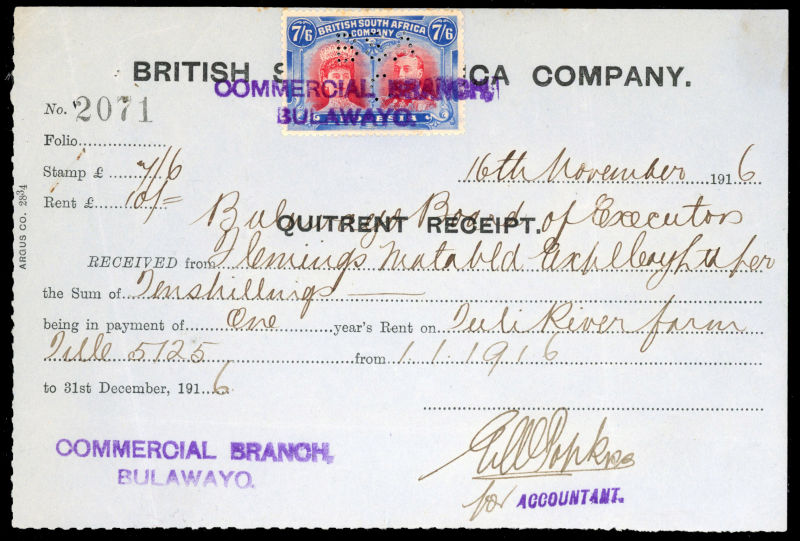 7/6 BRITISH SOUTH AFRICA COMPANY 7/6
BRITISH S ICA COMPANY.
COMMERCIAL BRANCH,
BULAWAYO.
No. 2071
Folio
Stamp £ 7/6
16th November 1916
Rent £ 10/=
Bulawayo Board of Executors
QUITRENT RECEIPT.
RECEIVED from Flemings Matabeld Expl
the Sum of Tenshillings
being in payment of One year's Rent on Tuli River farm
Title 5125 from 1.1.1916
to 31st December, 1916
COMMERCIAL BRANCH,
BULAWAYO.
for ACCOUNTANT.
ARGUS CO. 2834